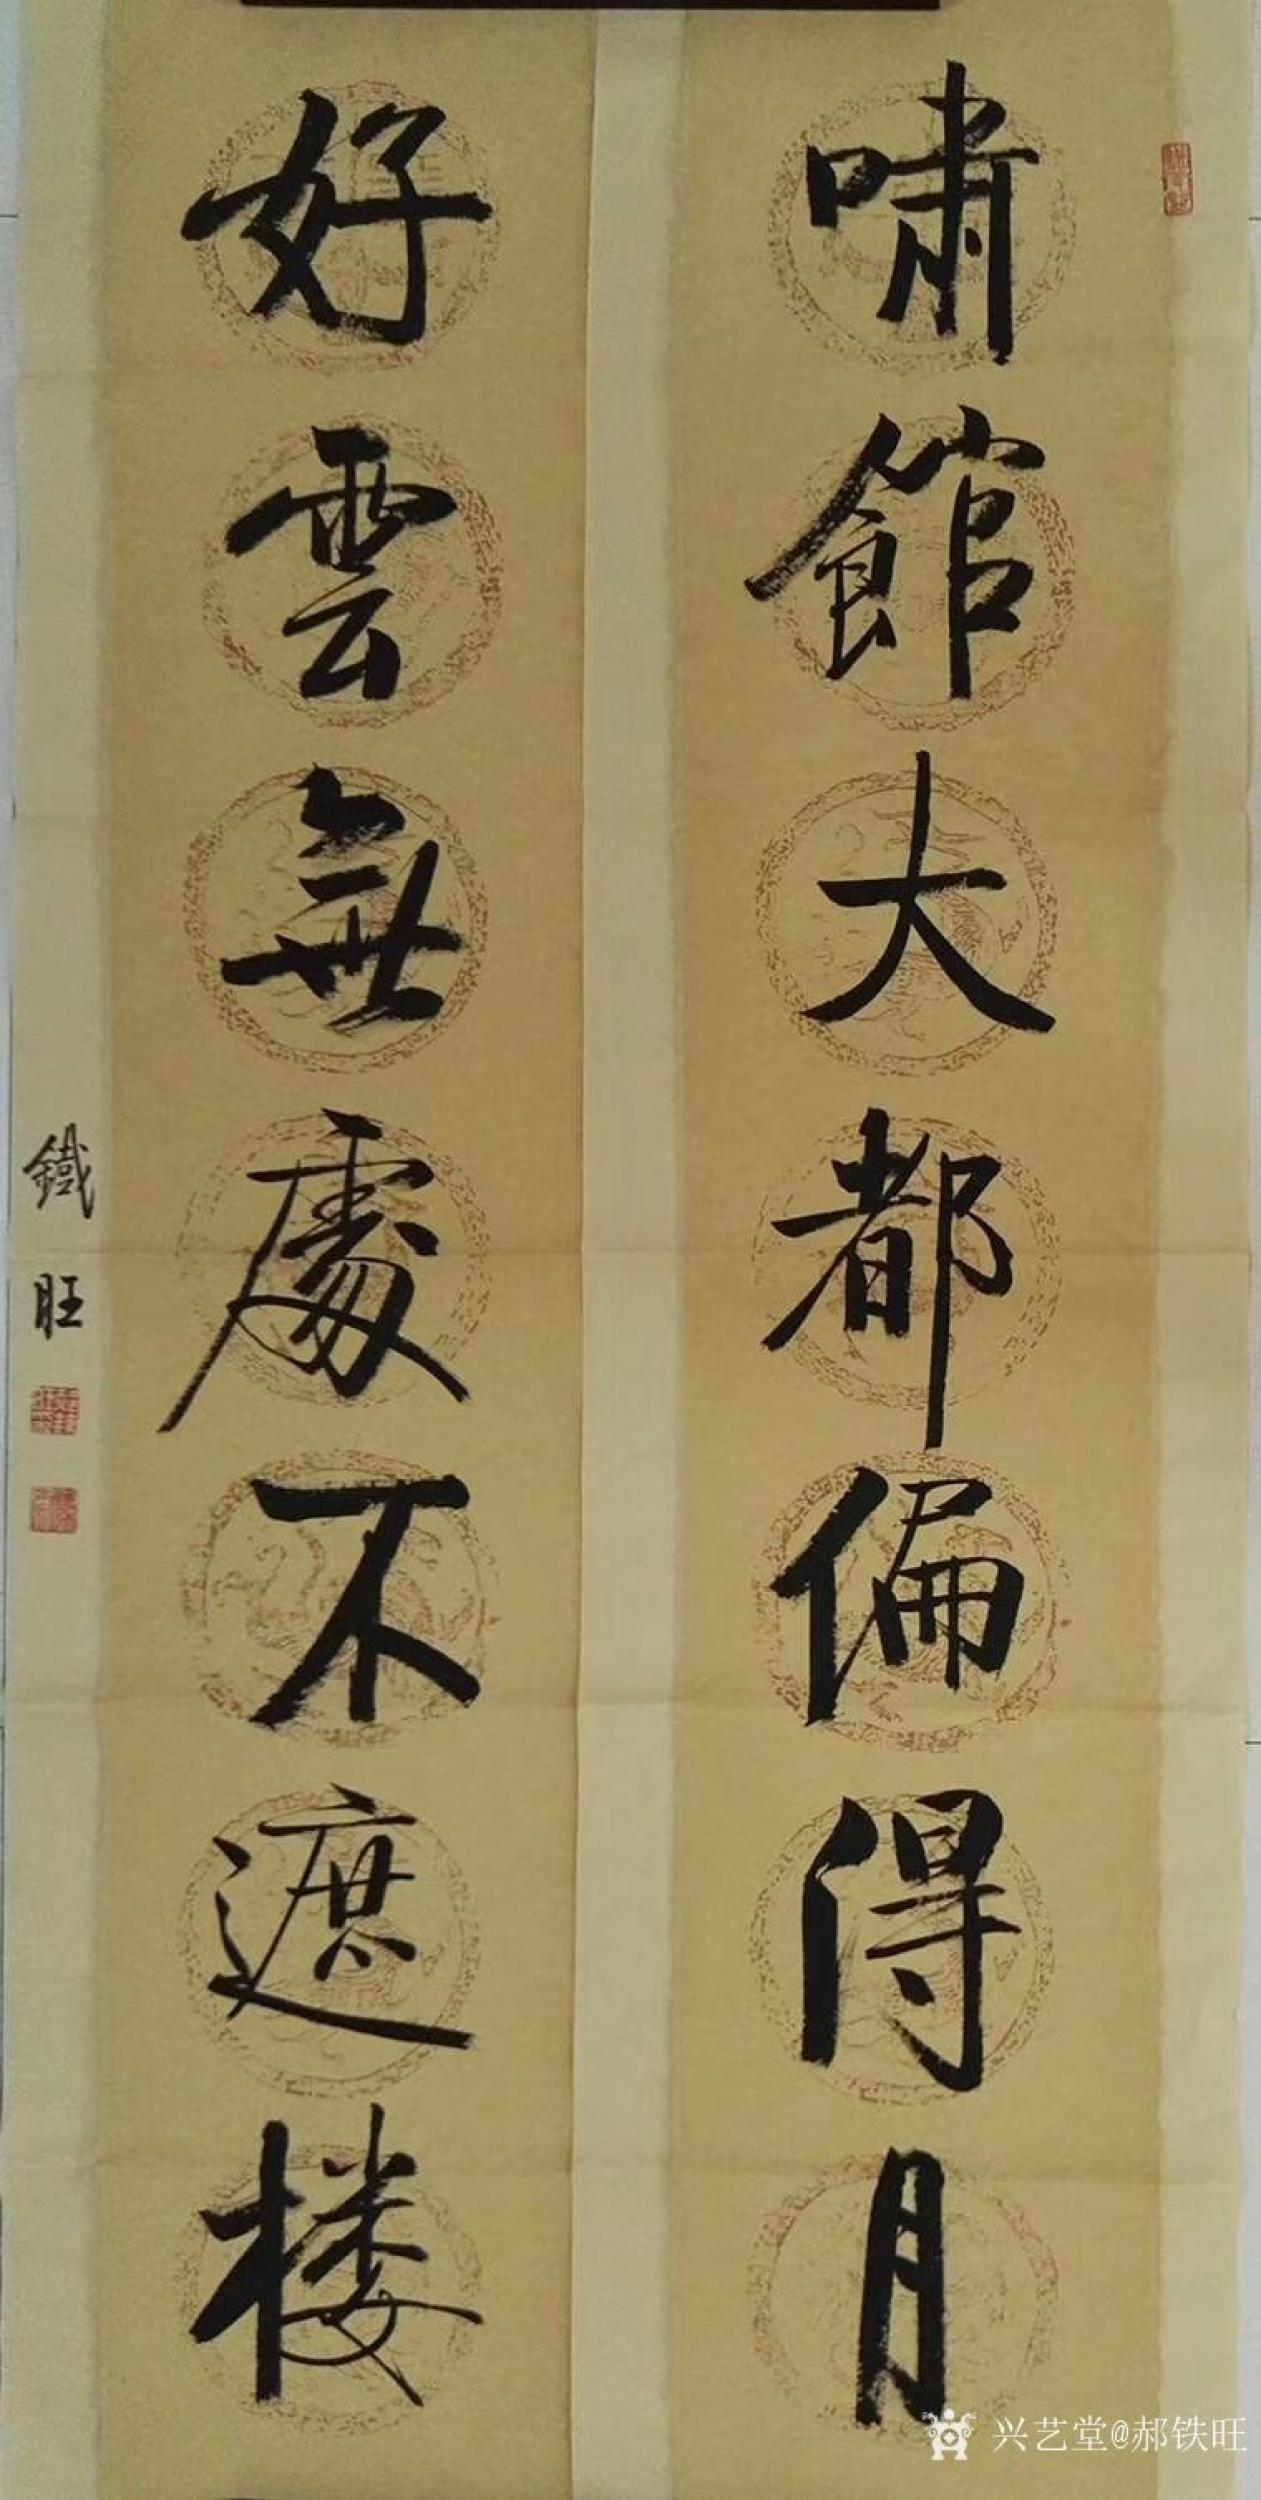 啸館大都偏得月
好雲無處不遮楼
鐵旺
兴艺堂@郝铁旺